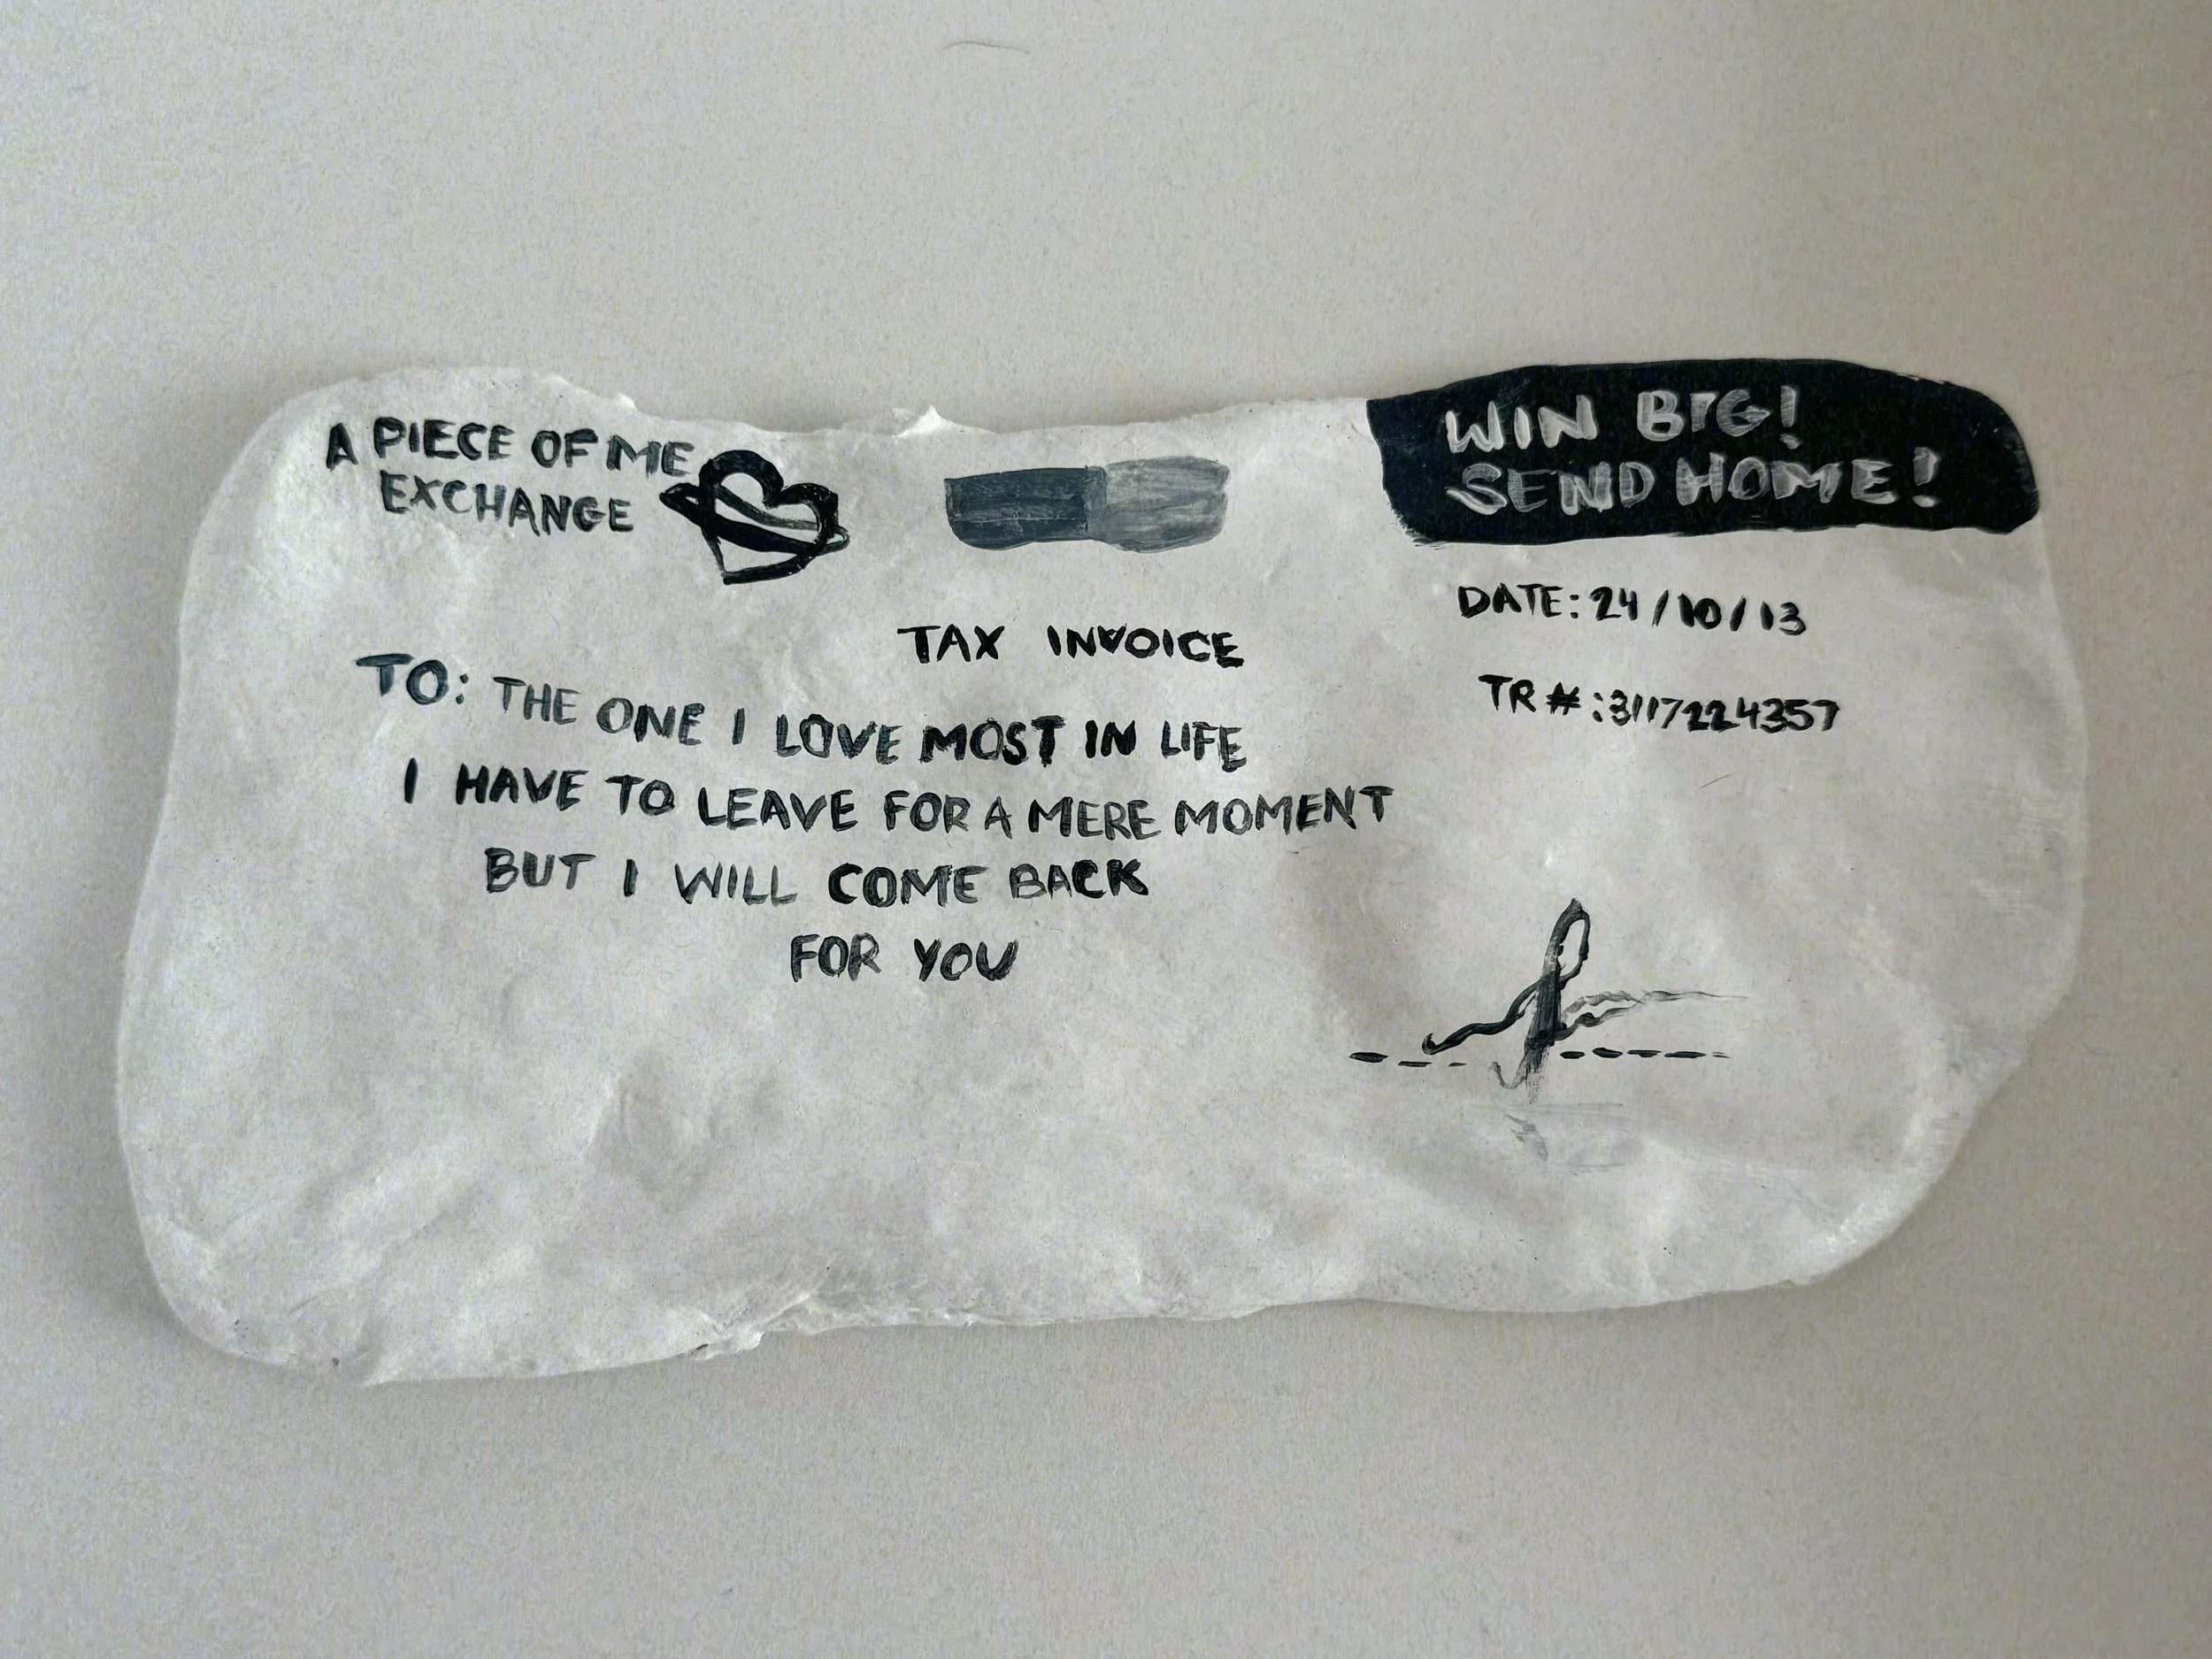 A PIECE OF ME
EXCHANGE
WIN BIG!
SEND HOME!
DATE: 24/10/13
TAX INVOICE
TR#:3117224357
TO: THE ONE I LOVE MOST IN LIFE
I HAVE TO LEAVE FOR A MERE MOMENT
BUT I WILL COME BACK
FOR YOU